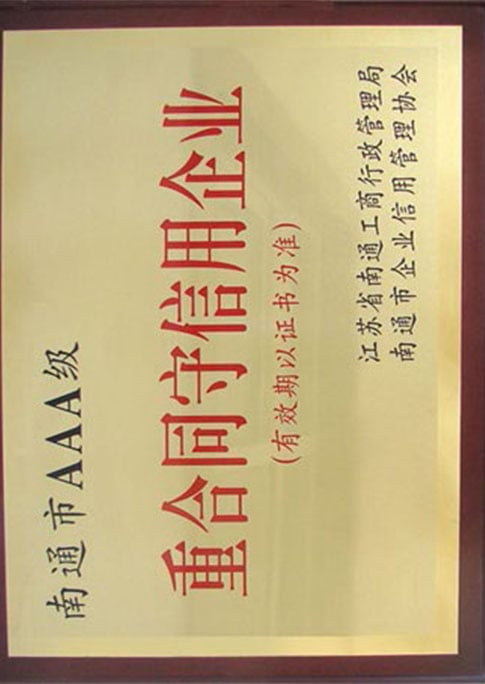 南通市AAA级
重合同守信用企业
(有效期以证书为准)
江苏省南通工商行政管理局
南通市企业信用管理协会